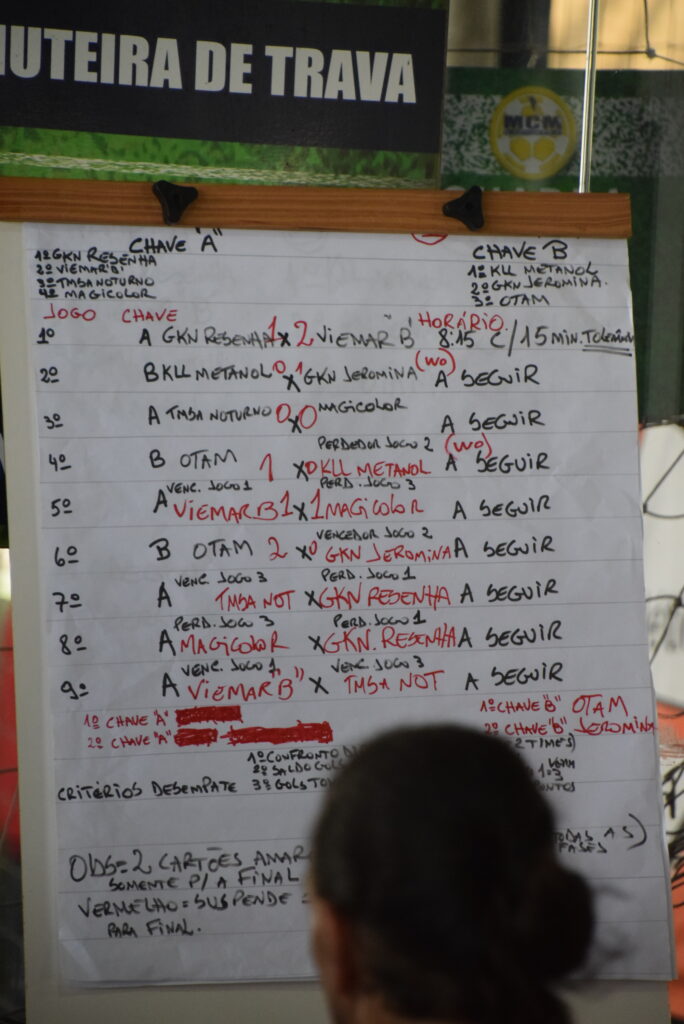 UTEIRA DE TRAVA
MCM
CHAVE "A"
1º GKN RESENHA
2º VIEMAR "B"
3º TMSA NOTURNO
4º MAGICOLOR
CHAVE B
1º KLL METANOL
2º GKN JEROMINA.
3º OTAM
JOGO CHAVE HORÁRIO.
1º A GKN RESENHA 1 X 2 VIEMAR "B" 8:15 C/15 MIN.
2º B KLL METANOL 0 X 1 GKN JEROMINA (WO) A SEGUIR
3º A TMSA NOTURNO 0 X 0 MAGICOLOR A SEGUIR
PERDEDOR JOGO 2
4º B OTAM 1 X 0 KLL METANOL (WO) A SEGUIR
VENC. JOGO 1 PERD. JOGO 3
5º A VIEMAR B 1 X 1 MAGICOLOR A SEGUIR
VENCEDOR JOGO 2
6º B OTAM 2 X 0 GKN JEROMINA A SEGUIR
VENC. JOGO 3 PERD. JOGO 1
7º A TMSA NOT X GKN RESENHA A SEGUIR
PERD. JOGO 3 PERD. JOGO 1
8º A MAGICOLOR X GKN. RESENHA A SEGUIR
VENC. JOGO 1 VENC. JOGO 3
9º A VIEMAR "B" X TMSA NOT A SEGUIR
1º CHAVE "A"
2º CHAVE "A"
1º CHAVE "B" OTAM
2º CHAVE "B" JEROMINA
2 TIMES)
1º CONFRONTO
2º SALDO GOLS
CRITÉRIOS DESEMPATE 3º GOLS
OBS= 2 CARTÕES AMAR
SOMENTE P/ A FINAL
VERMELHO = SUSPENDE =
PARA FINAL.
AS)
FASES